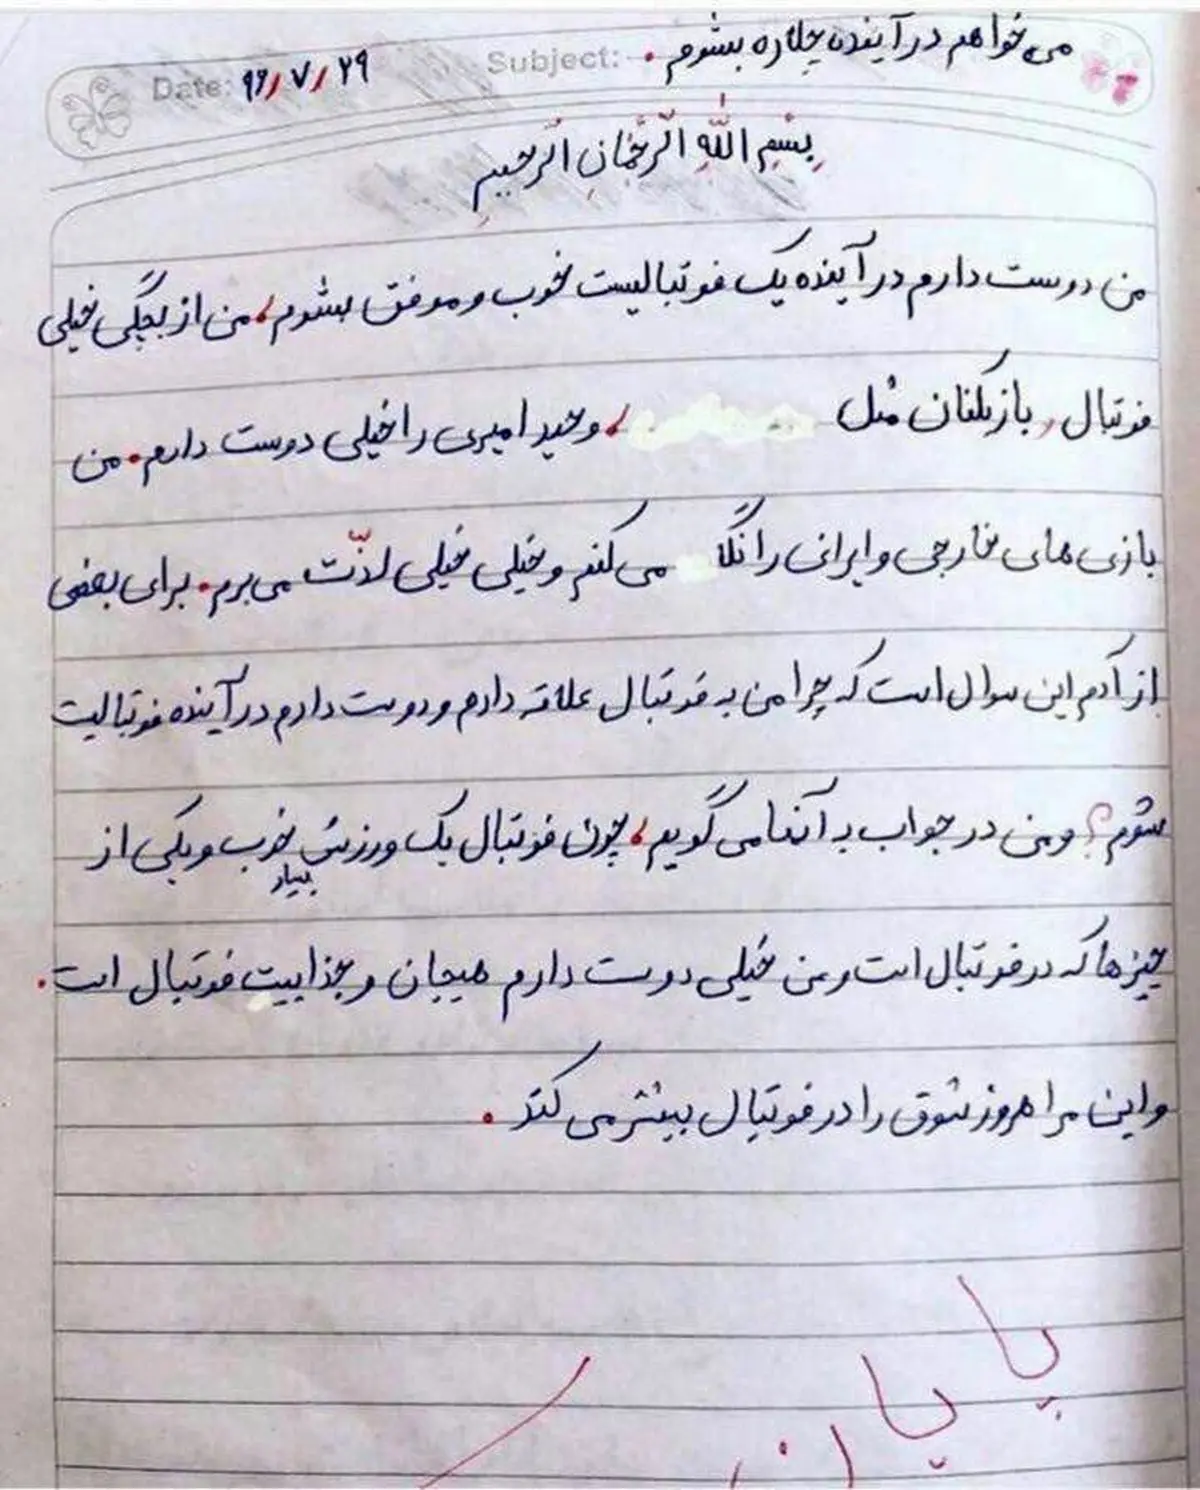 می خواهم در آینده چکاره بشوم.
Subject:
Date: ۹۶/۷/۲۹
بِسْمِ اللّٰهِ الرَّحْمٰنِ الرَّحیمِ
من دوست دارم در آینده یک فوتبالیست خوب و موفق بشوم، من از بچگی خیلی
فوتبال، بازیکنان مثل ، وحید امیری را خیلی دوست دارم. من
بازی های خارجی و ایرانی را نگا می کنم و خیلی خیلی لذّت می برم. برای بعضی
از آدم این سوال است که چرا من به فوتبال علاقه دارم و دوست دارم در آینده فوتبالیست
بشوم؟ و من در جواب به آنها می گویم، چون فوتبال یک ورزش خوب و یکی از
بسیار
چیزها که در فوتبال است و من خیلی دوست دارم هیجان و جذابیت فوتبال است.
و این مرا هر روز شوق را در فوتبال بیشتر می کند.
پایان